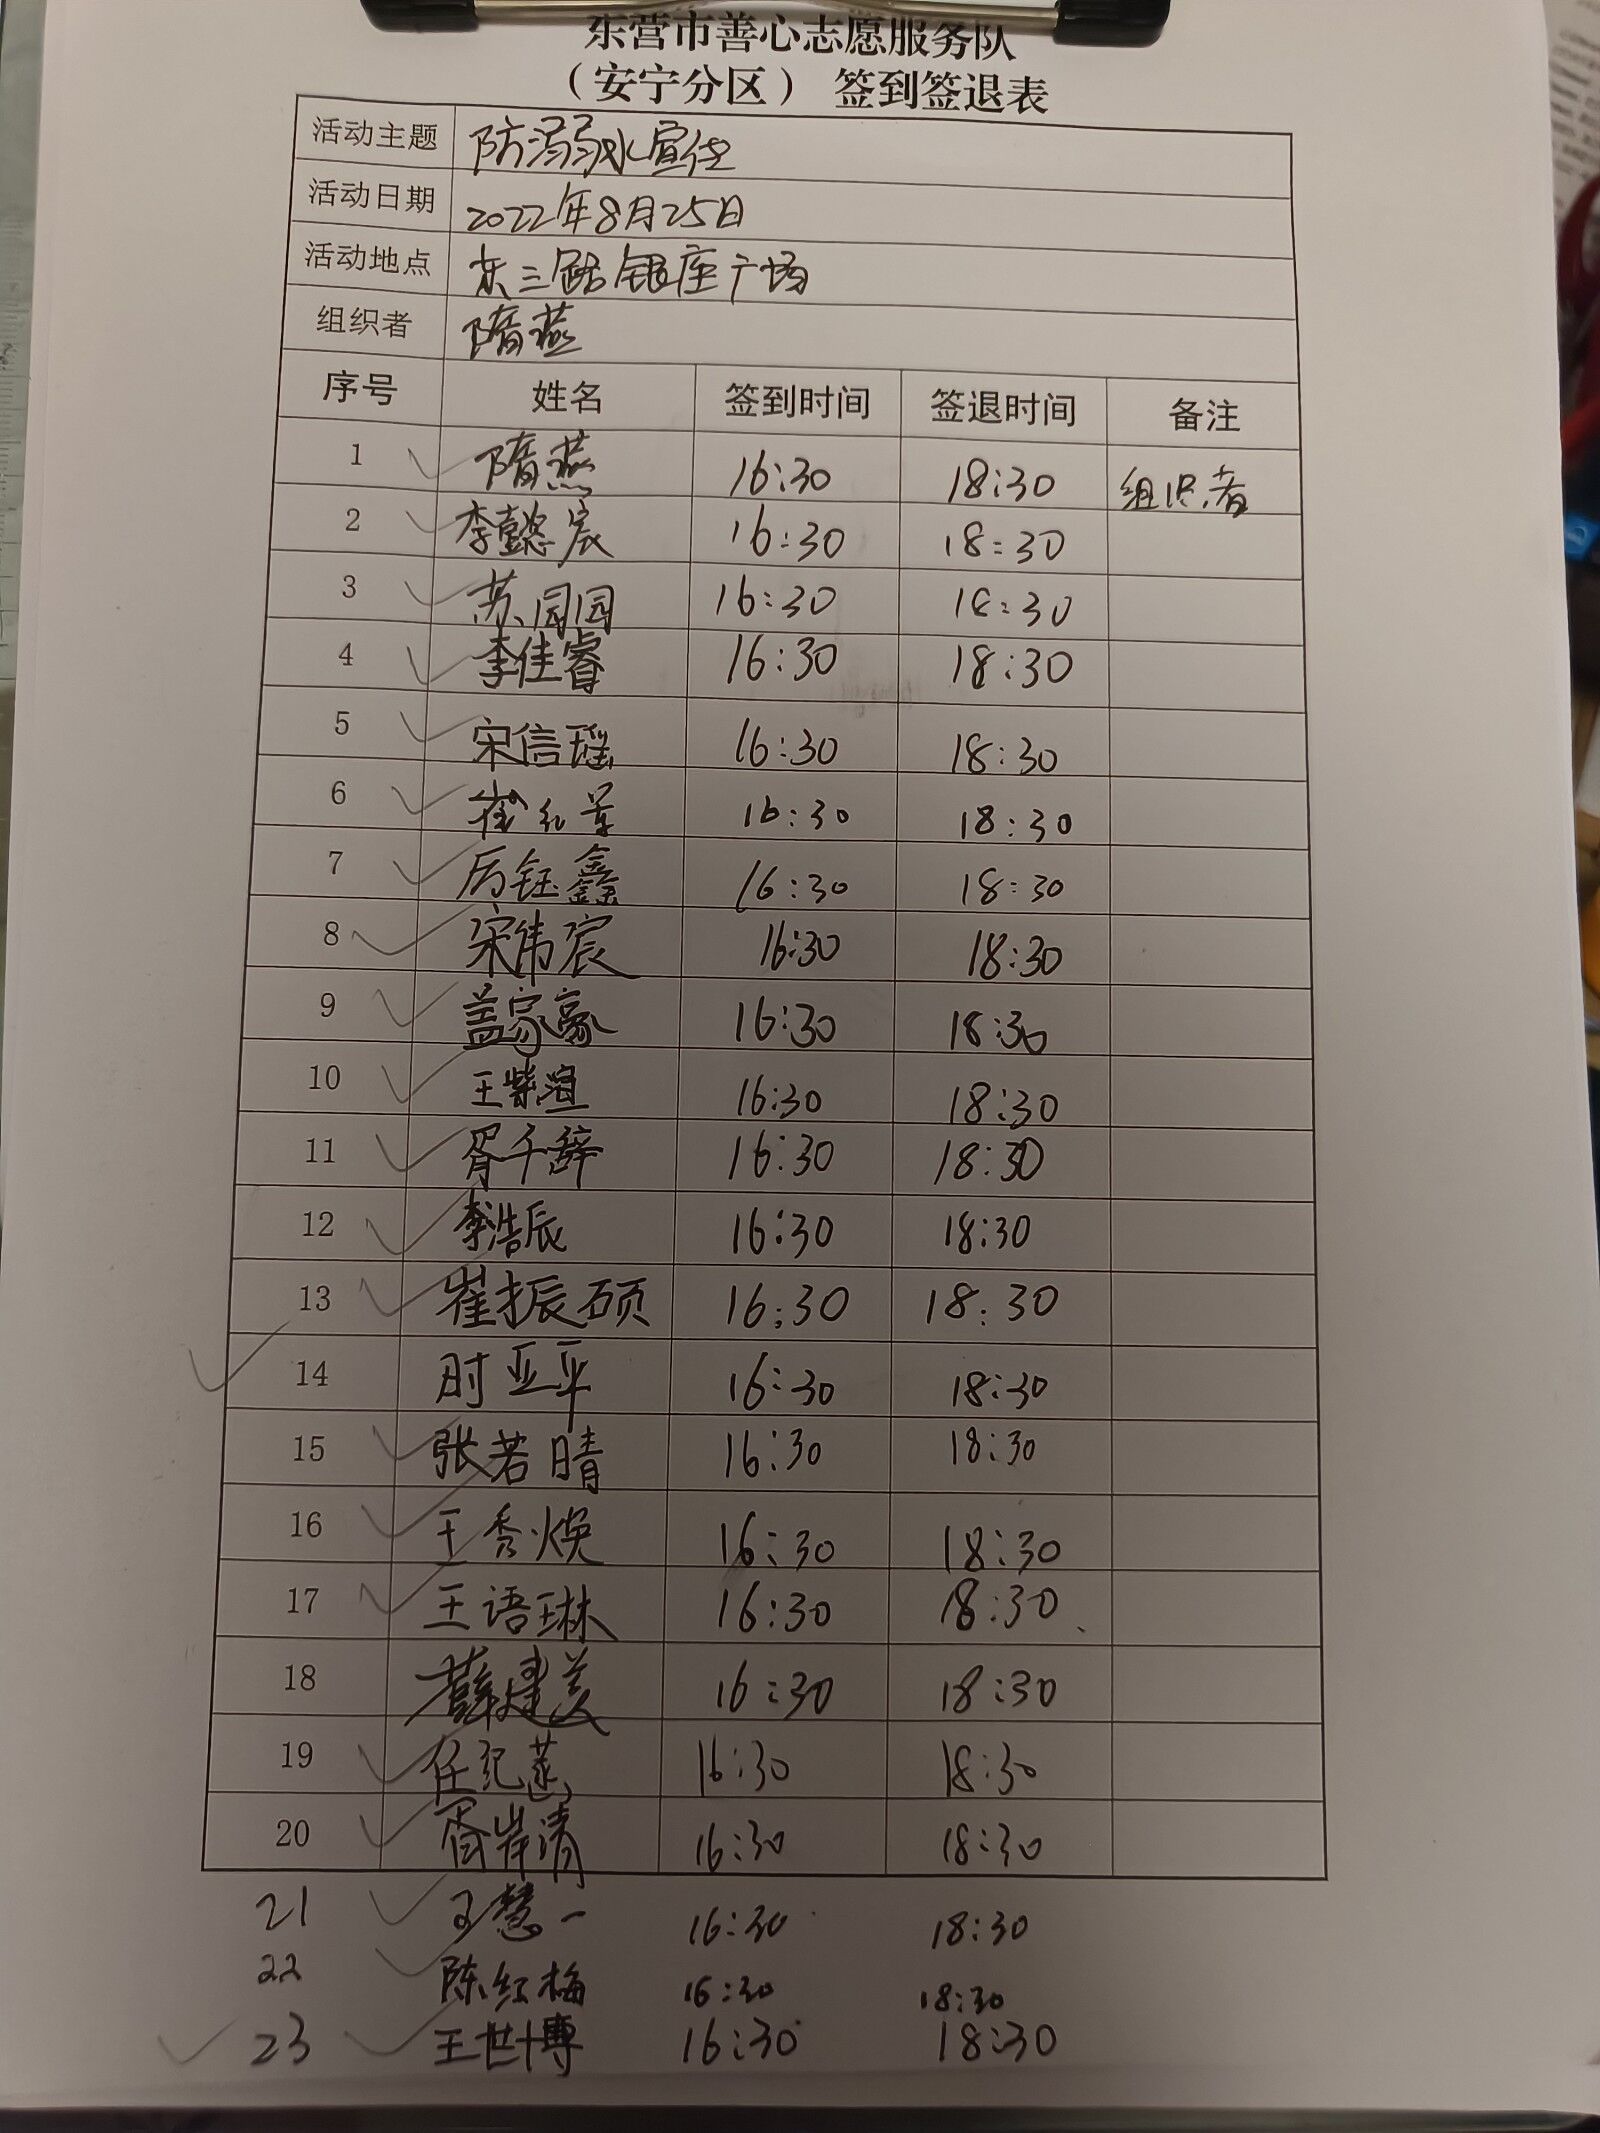 东营市善心志愿服务队
（安宁分区） 签到签退表
活动主题 防溺水宣传
活动日期 2022年8月25日
活动地点 东三路银座广场
组织者 隋燕
序号 姓名 签到时间 签退时间 备注
1 隋燕 16:30 18:30 组织者
2 李懿宸 16:30 18:30
3 苏园园 16:30 18:30
4 李佳睿 16:30 18:30
5 宋信瑶 16:30 18:30
6 崔红军 16:30 18:30
7 厉钰鑫 16:30 18:30
8 宋伟宸 16:30 18:30
9 盖家豪 16:30 18:30
10 王紫渲 16:30 18:30
11 胥千辞 16:30 18:30
12 李浩辰 16:30 18:30
13 崔振硕 16:30 18:30
14 时亚平 16:30 18:30
15 张若晴 16:30 18:30
16 王秀焕 16:30 18:30
17 王语琳 16:30 18:30
18 薛建美 16:30 18:30
19 任纪 16:30 18:30
20 胥岸清 16:30 18:30
21 王慧一 16:30 18:30
22 陈红梅 16:30 18:30
23 王世博 16:30 18:30